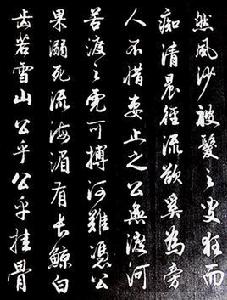 然風沙被髮之叟狂而
痴清晨徑流欲奚為旁
人不惜妻止之公無渡河
苦渡之虎可搏河難憑公
果溺死流海湄有長鯨白
齒若雪山公乎公乎挂骨